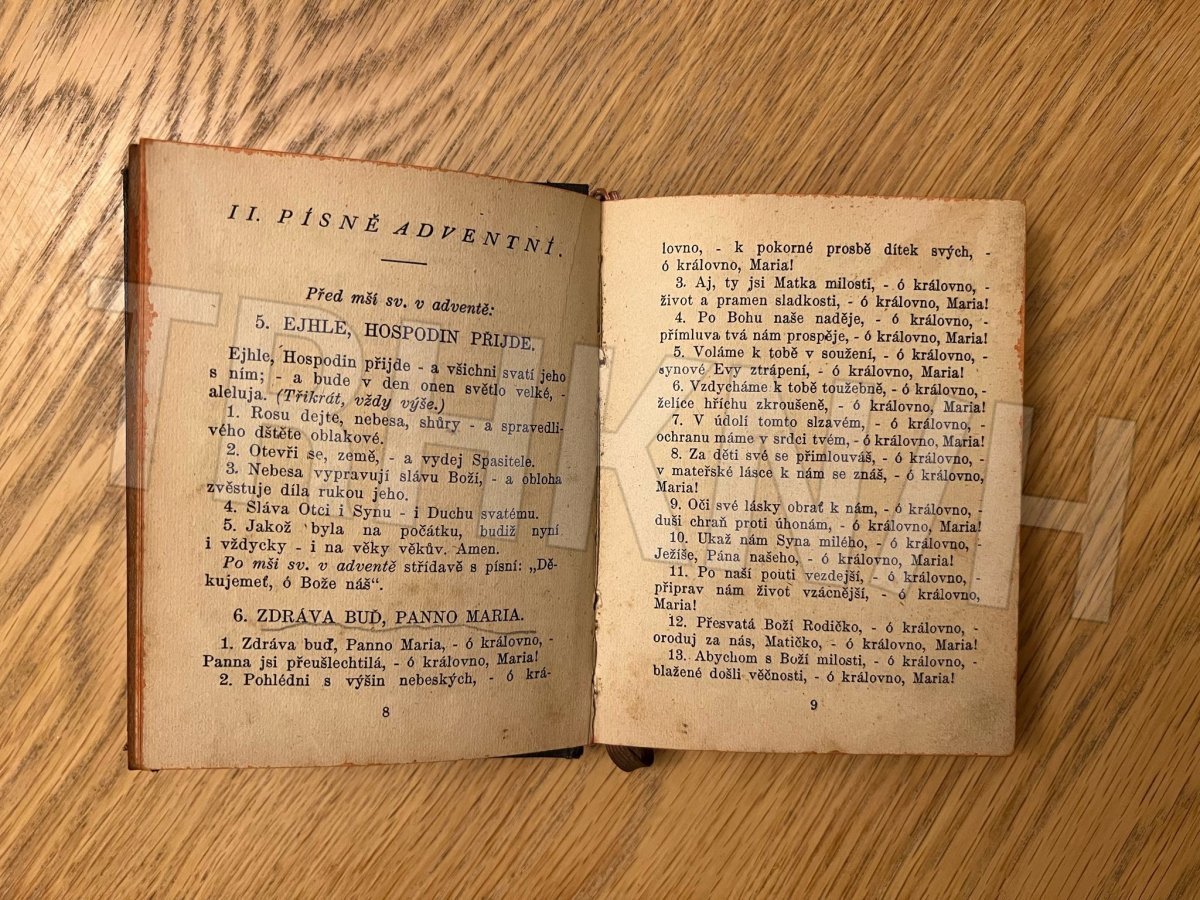 II. PÍSNĚ ADVENTNÍ.
Před mší sv. v adventě:
5. EJHLE, HOSPODIN PŘIJDE.
Ejhle, Hospodin přijde - a všichni svatí jeho
s ním; - a bude v den onen světlo velké, -
aleluja. (Třikrát, vždy výše.)
1. Rosu dejte, nebesa, shůry - a spravedli-
vého dštěte oblakové.
2. Otevři se, země, - a vydej Spasitele.
3. Nebesa vypravují slávu Boží, - a obloha
zvěstuje díla rukou jeho.
4. Sláva Otci i Synu - i Duchu svatému.
5. Jakož byla na počátku, budiž nyní
i vždycky - i na věky věkův. Amen.
Po mši sv. v adventě střídavě s písní: „Dě-
kujemeť, ó Bože náš“.
6. ZDRÁVA BUĎ, PANNO MARIA.
1. Zdráva buď, Panno Maria, - ó královno,
Panna jsi přeušlechtilá, - ó královno, Maria!
2. Pohlédni s výšin nebeských, - ó krá-
8
lovno, - k pokorné prosbě dítek svých, -
ó královno, Maria!
3. Aj, ty jsi Matka milosti, - ó královno, -
život a pramen sladkosti, - ó královno, Maria!
4. Po Bohu naše naděje, - ó královno, -
přímluva tvá nám prospěje, - ó královno, Maria!
5. Voláme k tobě v soužení, - ó královno, -
synové Evy ztrápení, - ó královno, Maria!
6. Vzdycháme k tobě toužebně, - ó královno, -
želíce hříchu zkroušeně, - ó královno, Maria!
7. V údolí tomto slzavém, - ó královno, -
ochranu máme v srdci tvém, - ó královno, Maria!
8. Za děti své se přimlouváš, - ó královno, -
v mateřské lásce k nám se znáš, - ó královno,
Maria!
9. Oči své lásky obrať k nám, - ó královno, -
duši chraň proti úhonám, - ó královno, Maria!
10. Ukaž nám Syna milého, - ó královno, -
Ježíše, Pána našeho, - ó královno, Maria!
11. Po naší pouti vezdejší, - ó královno, -
připrav nám život vzácnější, - ó královno,
Maria!
12. Přesvatá Boží Rodičko, - ó královno, -
oroduj za nás, Matičko, - ó královno, Maria!
13. Abychom s Boží milosti, - ó královno, -
blažené došli věčnosti, - ó královno, Maria!
9
TRHKNIH